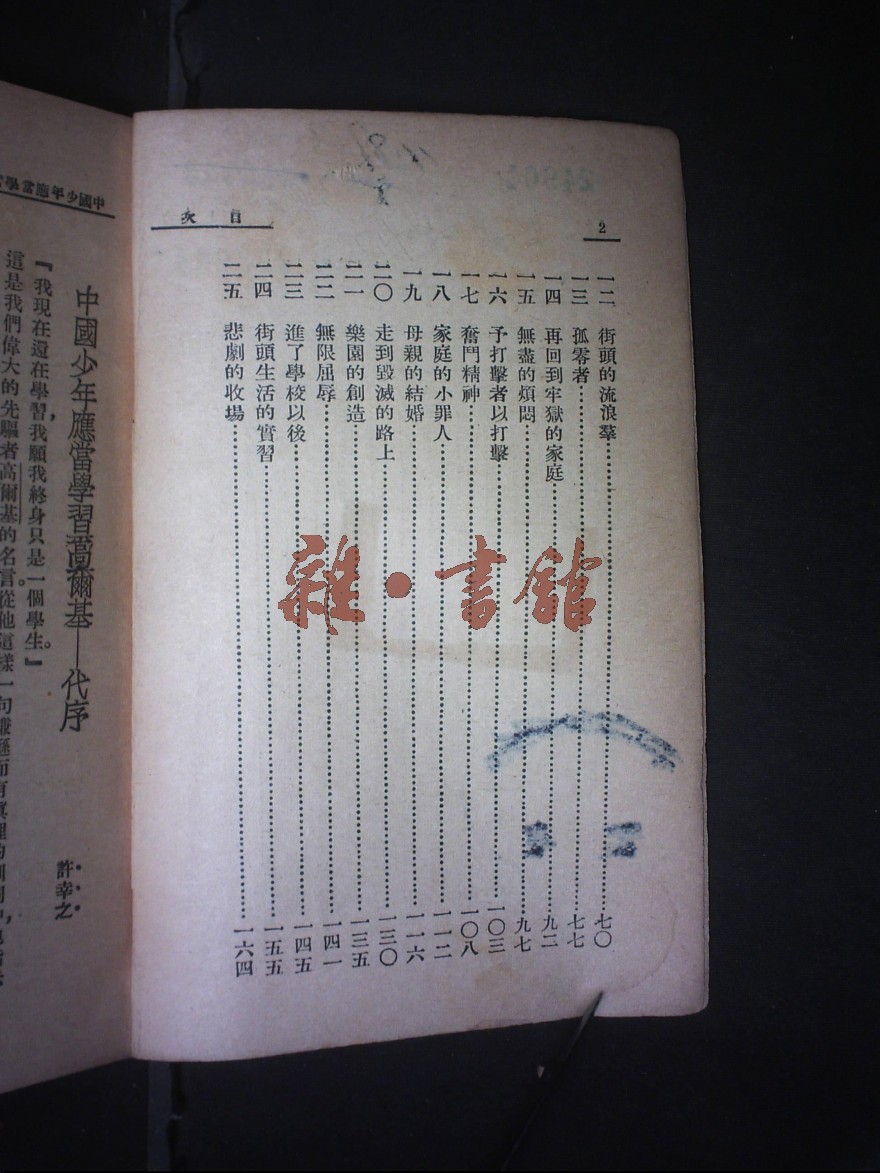 2
目次
一二 街頭的流浪羣 七〇
一三 孤零者 七七
一四 再回到牢獄的家庭 九二
一五 無盡的煩悶 九七
一六 予打擊者以打擊 一〇三
一七 奮鬥精神 一〇八
一八 家庭的小罪人 一一二
一九 母親的結婚 一一六
二〇 走到毀滅的路上 一三〇
二一 樂園的創造 一三五
二二 無限屈辱 一四一
二三 進了學校以後 一四五
二四 街頭生活的實習 一五五
二五 悲劇的收場 一六四
雜·書館
中國少年應當學習
中國少年應當學習高爾基——代序
許幸之
『我現在還在學習，我願我終身只是一個學生。』
這是我們偉大的先驅者高爾基的名言。從他這樣一句謙遜而有眞理的